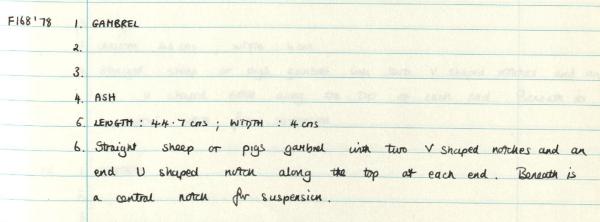 F168'78 1. GAMBREL
2.
3.
4. ASH
5. LENGTH: 44.7 cms; WIDTH: 4 cms
6. Straight sheep or pigs gambrel with two V shaped notches and an
end U shaped notch along the top at each end. Beneath is
a central notch for suspension.